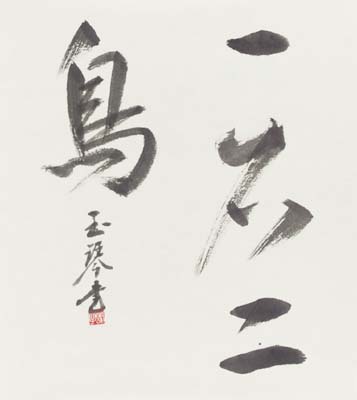 一石二
鳥
玉琴书